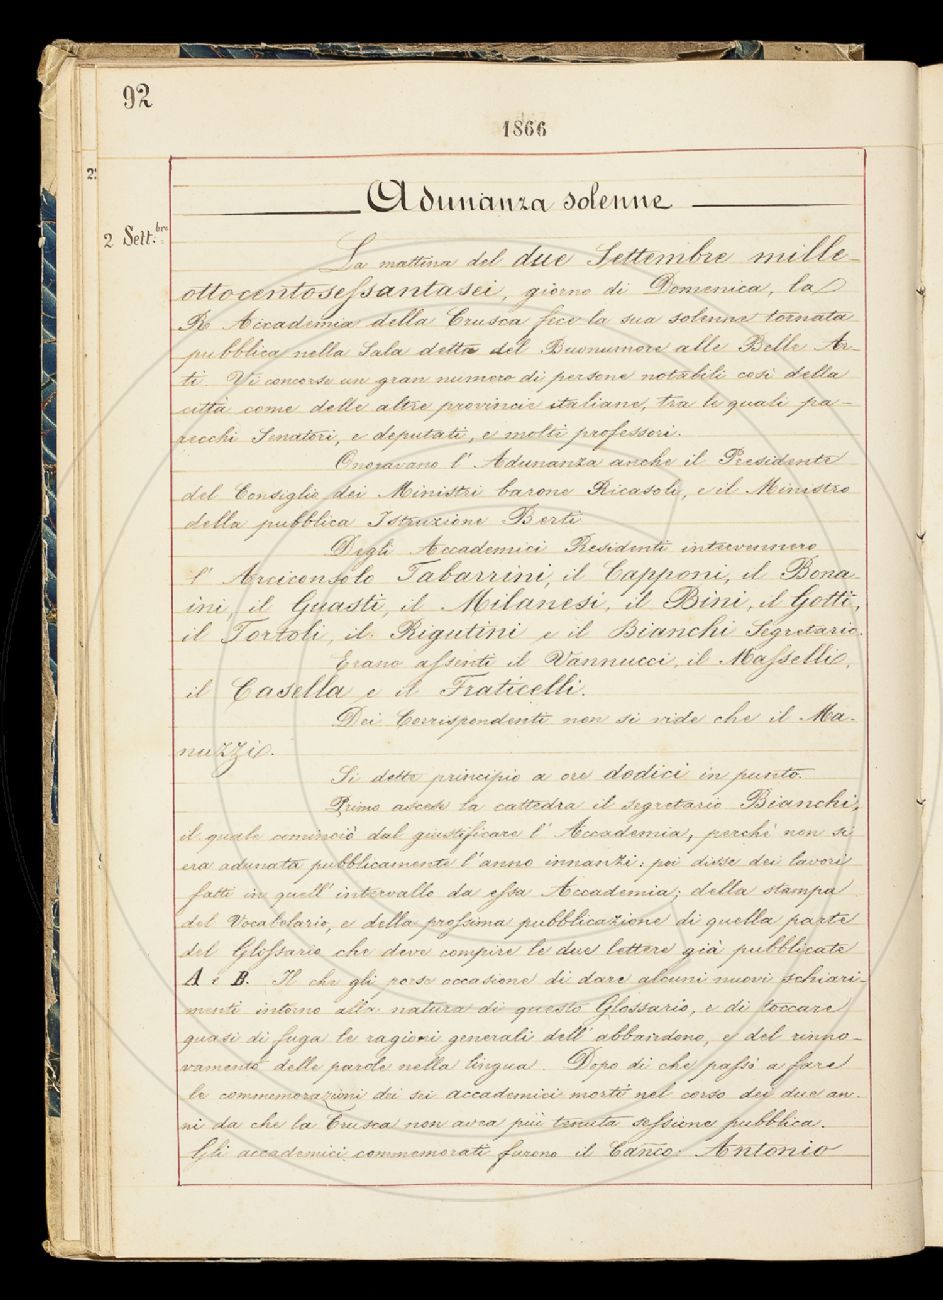 92
1866
2
Adunanza solenne
2 Sett.bre
La mattina del due Settembre mille-
ottocentosessantasei, giorno di Domenica, la
R. Accademia della Crusca fece la sua solenne tornata
pubblica nella Sala detta del Buonumore alle Belle Ar-
ti. Vi concorse un gran numero di persone notabili così della
città come delle altre provincie italiane, tra le quali pa-
recchi Senatori, e deputati, e molti professori.
Onoravano l' Adunanza anche il Presidente
del Consiglio dei Ministri barone Ricasoli, e il Ministro
della pubblica Istruzione Berti
Degli Accademici Residenti intervennero
l' Arciconsolo Tabarrini, il Capponi, il Bona-
ini, il Guasti, il Milanesi, il Bini, il Gotti,
il Tortoli, il Rigutini e il Bianchi Segretario.
Erano assenti il Vannucci, il Masselli,
il Casella e il Fraticelli.
Dei Corrispondenti non si vide che il Ma-
nuzzi.
Si dette principio a ore dodici in punto.
Primo ascese la cattedra il segretario Bianchi,
il quale cominciò dal giustificare l' Accademia, perchè non si
era adunata pubblicamente l'anno innanzi: poi disse dei lavori
fatti in quell' intervallo da essa Accademia; della stampa
del Vocabolario, e della prossima pubblicazione di quella parte
del Glossario che deve compire le due lettere già pubblicate
A e B. Il che gli porse occasione di dare alcuni nuovi schiari-
menti intorno alla natura di questo Glossario, e di toccare
quasi di fuga le ragioni generali dell' abbandono, e del rinno-
vamento delle parole nella lingua. Dopo di che passò a fare
le commemorazioni dei sei accademici morti nel corso dei due an-
ni da che la Crusca non avea più tenuta sessione pubblica.
Gli accademici commemorati furono il Canco. Antonio